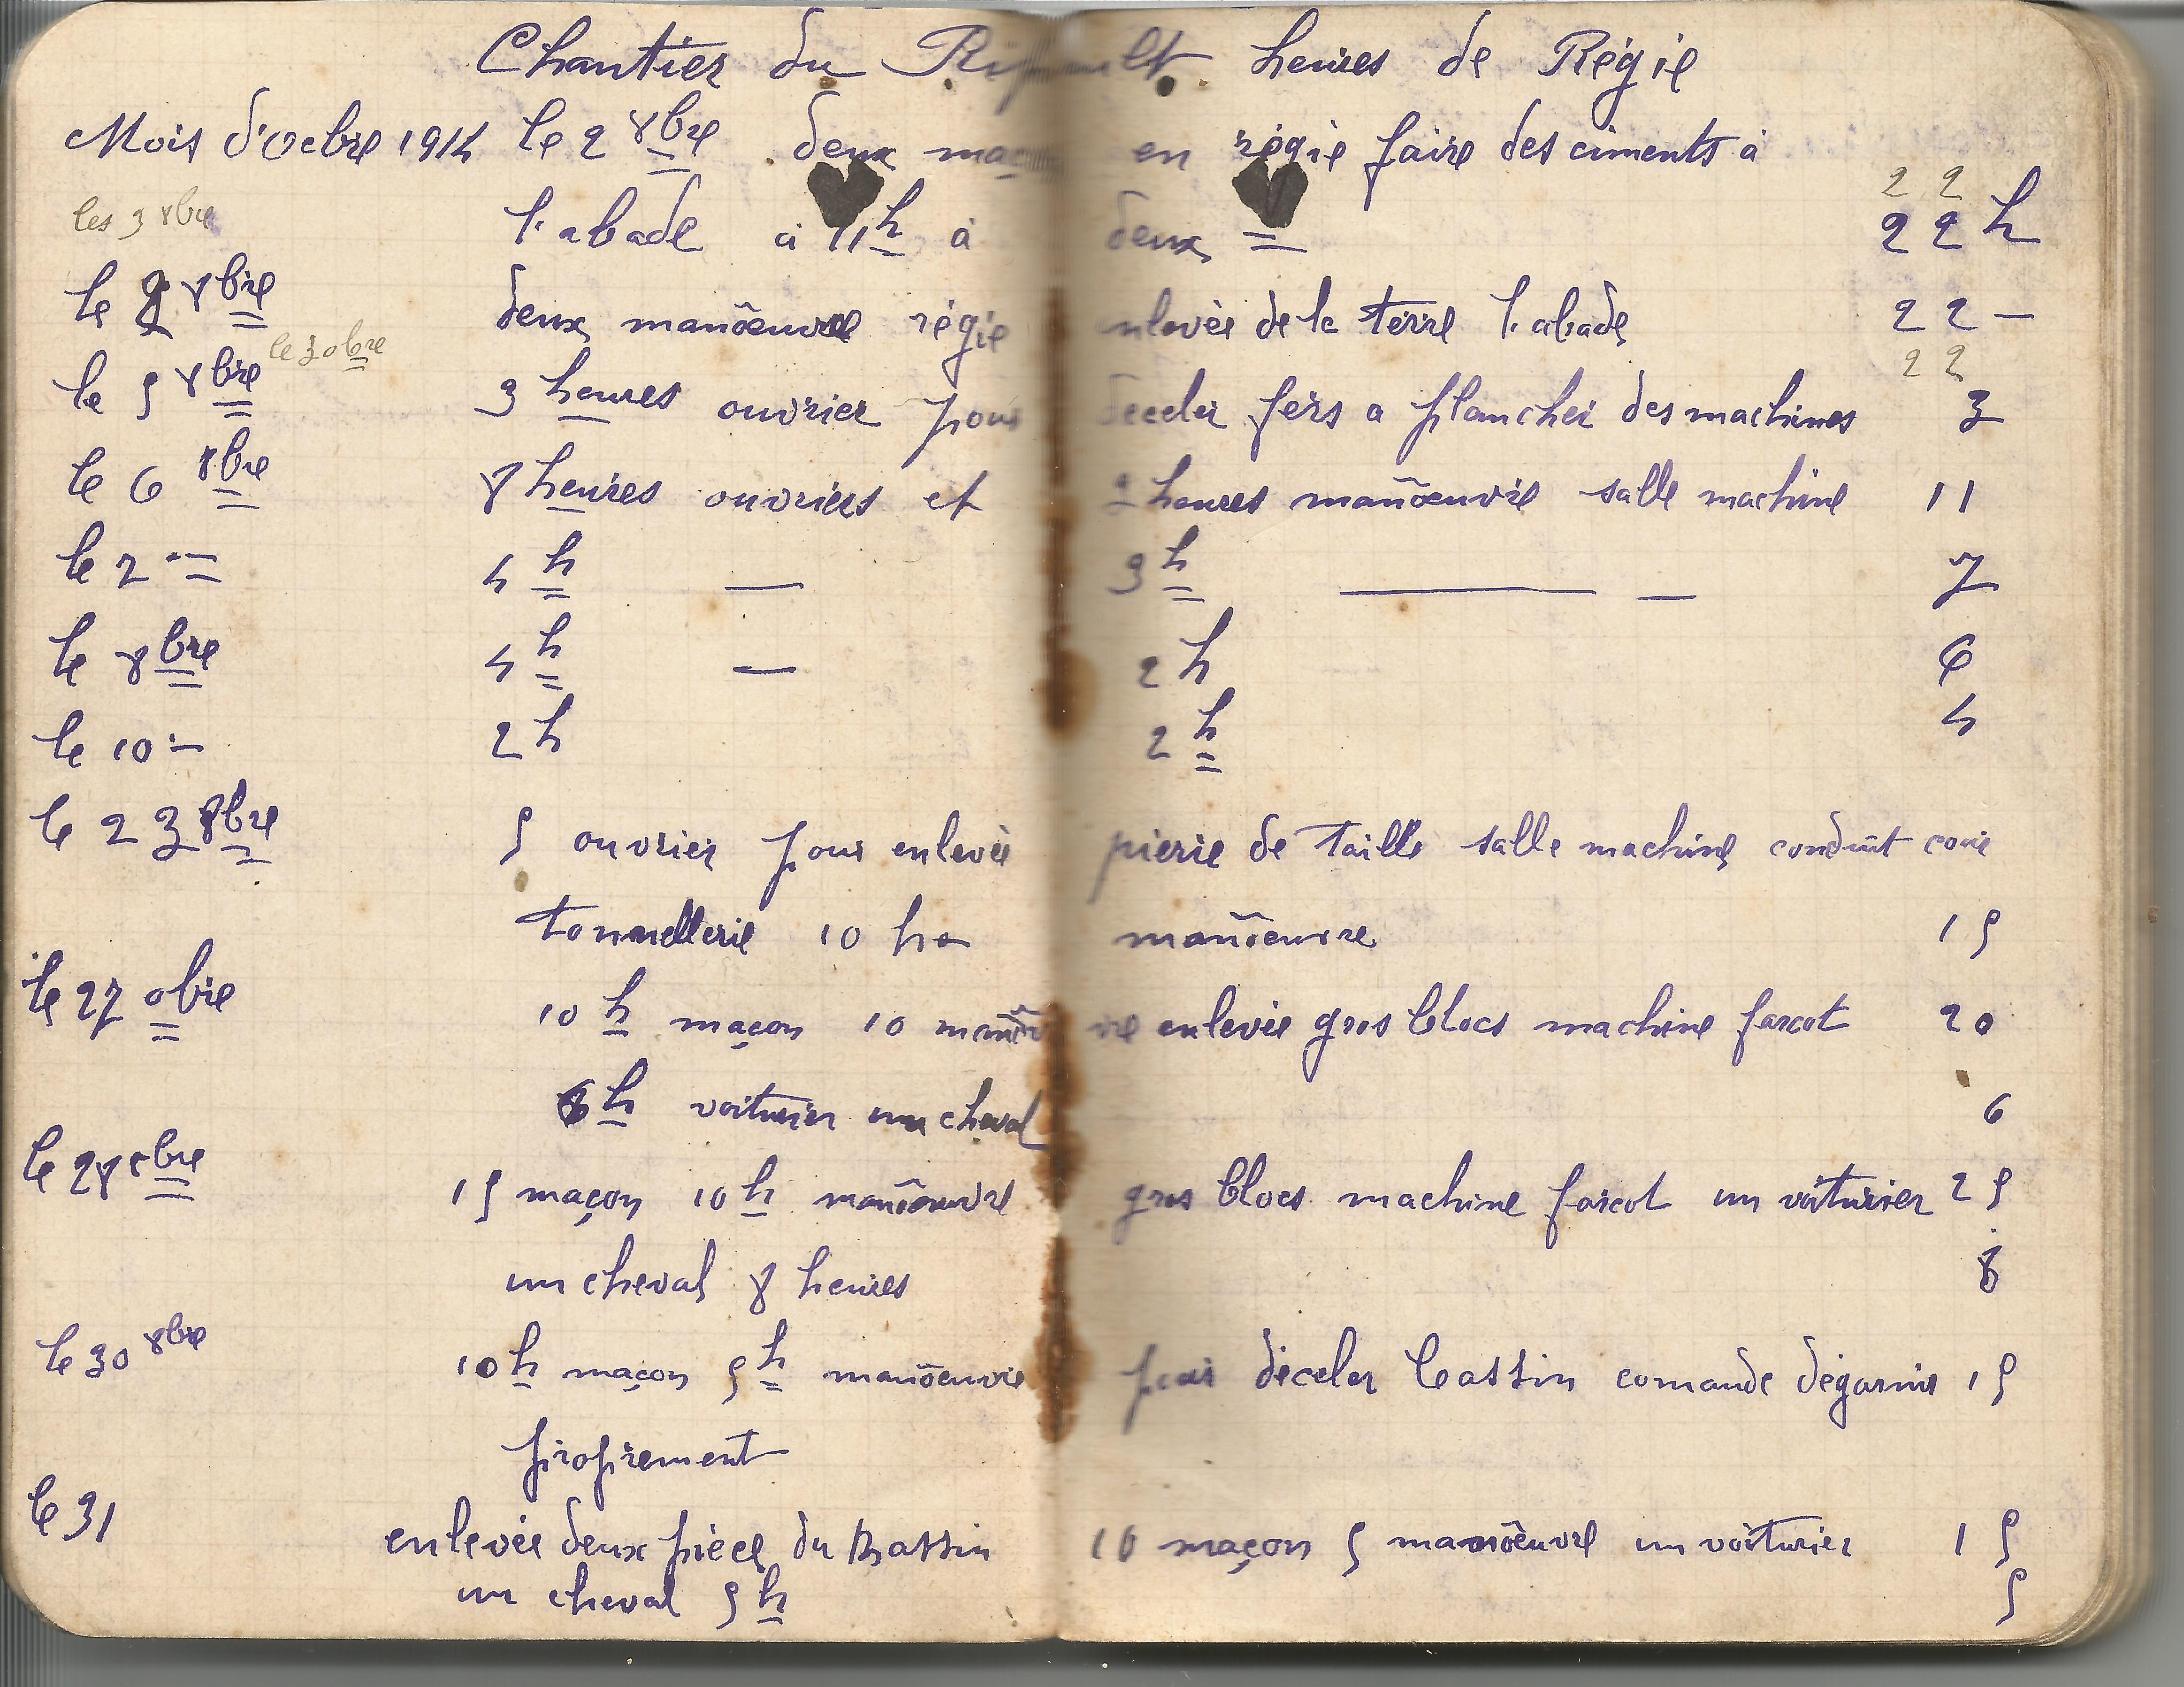 Chantier du Ripault heures de Régie
Mois d'Octbre 1914 le 2 8bre deux maç en régie faire des ciments à
les 3 8bre 22
l'abade à 11h à deux = 22h
le 2 8bre deux manõeuvre régie enlevée de la terre l'abade 22 —
le 3 obre 22
le 5 8bre 3 heures ouvrier pour déceler fers a plancher des machines 3
le 6 8bre 8 heures ouvriers et heures manõeuvre salle machine 11
le 7 -= 4h — 3h —— — 7
le 8bre 4h — 2h 6
le 10 - 2h 2h 4
le 23 8bre 5 ouvrier pour enlevée pierre de taille salle machine conduit
tonnellerie 10 h manõeuvre 15
le 27 obre 10h maçon 10 manõeuvre enlevée gros blocs machine farcot 20
6h voiturier un cheval 6
le 28 obre 15 maçon 10h manõeuvre gros blocs machine farcot un voiturier 25
un cheval 8 heures 8
le 30 8bre 10h maçon 5h manõeuvre pour déceler bassin comande dégarnir 15
proprement
le 31 enlevée deux pièce du Bassin 10 maçon 5 manõeuvre un voiturier 15
un cheval 5h 5